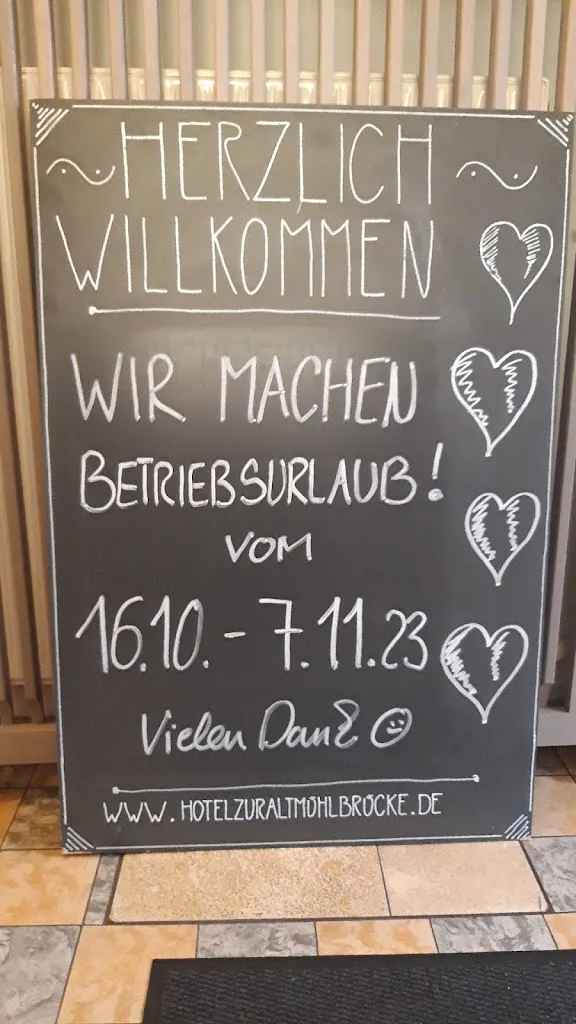 HERZLICH
WILLKOMMEN
WIR MACHEN
BETRIEBSURLAUB!
VOM
16.10. - 7.11.23
Vielen Dank ☺
WWW.HOTELZURALTMÜHLBRÜCKE.DE